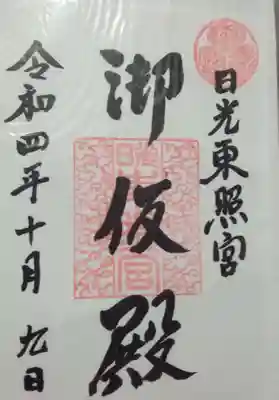 日光東照宮
御仮殿
令和四年十月九日